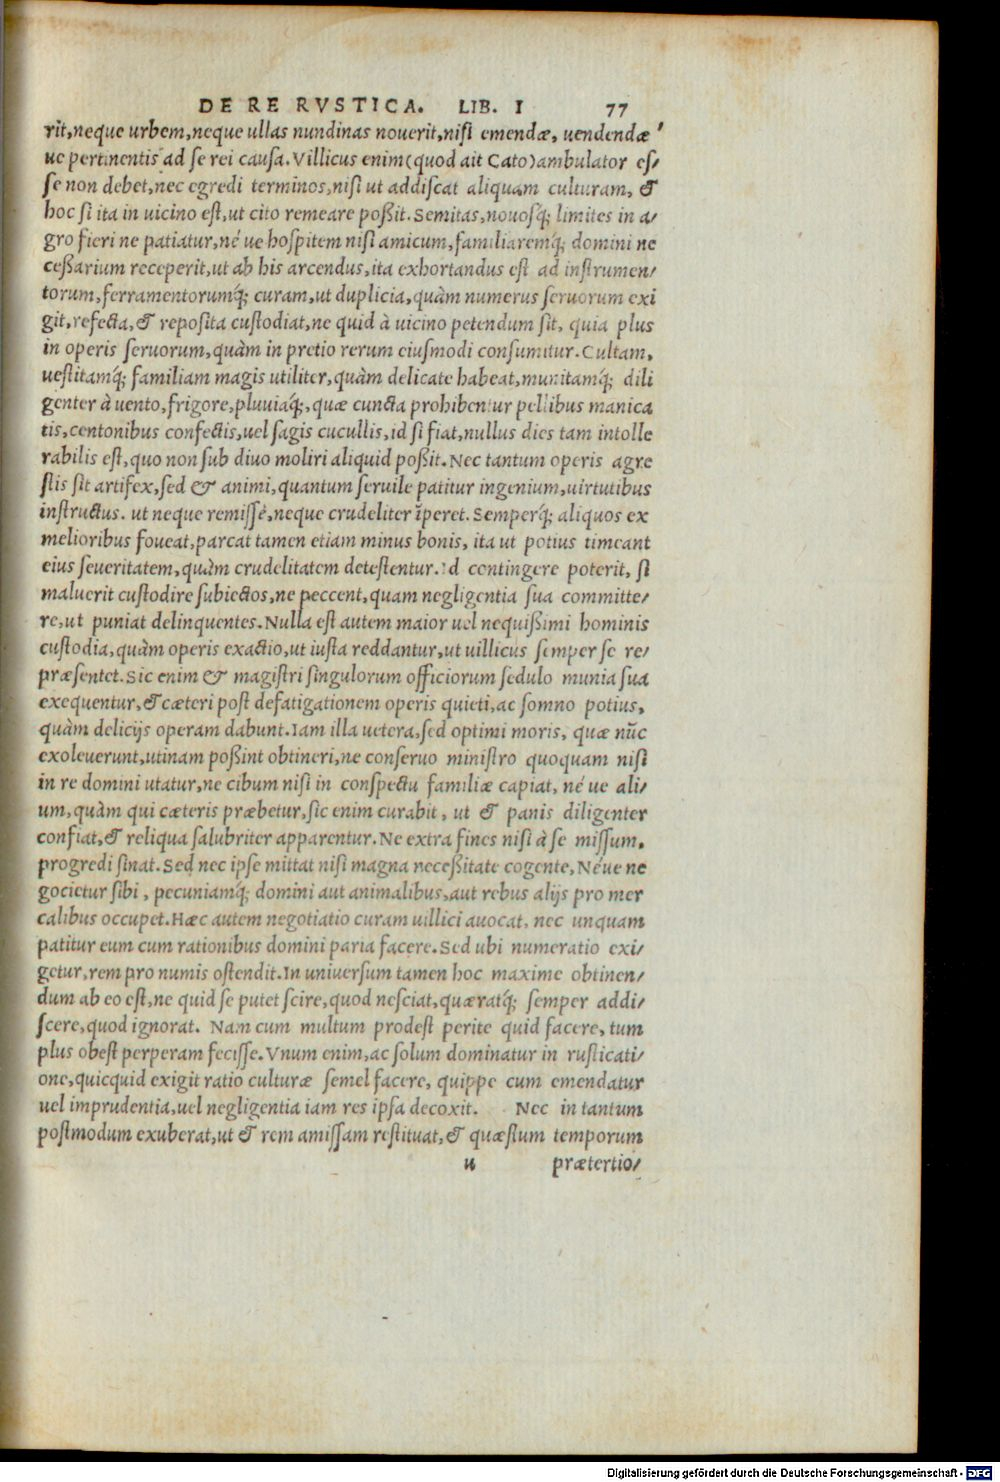 DE RE RVSTICA. LIB. I 77
rit,neque urbem,neque ullas nundinas nouerit,nisi emendæ, uendendæ
ue pertinentis ad se rei causa.Villicus enim(quod ait Cato)ambulator es/
se non debet,nec egredi terminos,nisi ut addiscat aliquam culturam, &
hoc si ita in uicino est,ut cito remeare poßit.Semitas,nouosq́; limites in a/
gro fieri ne patiatur,né ue hospitem nisi amicum,familiaremq́; domini ne
ceßarium receperit,ut ab his arcendus,ita exhortandus est ad instrumen/
torum,ferramentorumq́; curam,ut duplicia,quàm numerus seruorum exi
git,refecta,& reposita custodiat,ne quid à uicino petendum sit, quia plus
in operis seruorum,quàm in pretio rerum eiusmodi consumitur.Cultam,
uestitamq́; familiam magis utiliter,quàm delicate habeat,munitamq́; dili
genter à uento,frigore,pluuiaq́;,quæ cuncta prohibentur pellibus manica
tis,centonibus confectis,uel sagis cucullis,id si fiat,nullus dies tam intolle
rabilis est,quo non sub diuo moliri aliquid poßit.Nec tantum operis agre
stis sit artifex,sed & animi,quantum seruile patitur ingenium,uirtutibus
instructus. ut neque remissè,neque crudeliter īperet.Semperq́; aliquos ex
melioribus foueat,parcat tamen etiam minus bonis, ita ut potius timeant
eius seueritatem,quàm crudelitatem detestentur.Id contingere poterit, si
maluerit custodire subiectos,ne peccent,quam negligentia sua committe/
re,ut puniat delinquentes.Nulla est autem maior uel nequißimi hominis
custodia,quàm operis exactio,ut iusta reddantur,ut uillicus semper se re/
præsentet.Sic enim & magistri singulorum officiorum sedulo munia sua
exequentur,& cæteri post defatigationem operis quieti,ac somno potius,
quàm delicijs operam dabunt.Iam illa uetera,sed optimi moris, quæ nūc
exoleuerunt,utinam poßint obtineri,ne conseruo ministro quoquam nisi
in re domini utatur,ne cibum nisi in conspectu familiæ capiat, né ue ali/
um,quàm qui cæteris præbetur,sic enim curabit, ut & panis diligenter
confiat,& reliqua salubriter apparentur.Ne extra fines nisi à se missum,
progredi sinat.Sed nec ipse mittat nisi magna neceßitate cogente,Néue ne
gocietur sibi, pecuniamq́; domini aut animalibus,aut rebus alijs pro mer
calibus occupet.Hæc autem negotiatio curam uillici auocat, nec unquam
patitur eum cum rationibus domini paria facere.Sed ubi numeratio exi/
getur,rem pro numis ostendit.In uniuersum tamen hoc maxime obtinen/
dum ab eo est,ne quid se putet scire,quod nesciat,quæratq́; semper addi/
scere,quod ignorat. Nam cum multum prodest perite quid facere, tum
plus obest perperam fecisse.Vnum enim,ac solum dominatur in rusticati/
one,quicquid exigit ratio culturæ semel facere, quippe cum emendatur
uel imprudentia,uel negligentia iam res ipsa decoxit. Nec in tantum
postmodum exuberat,ut & rem amissam restituat,& quæstum temporum
u prætertio/
Digitalisierung gefördert durch die Deutsche Forschungsgemeinschaft - DFG